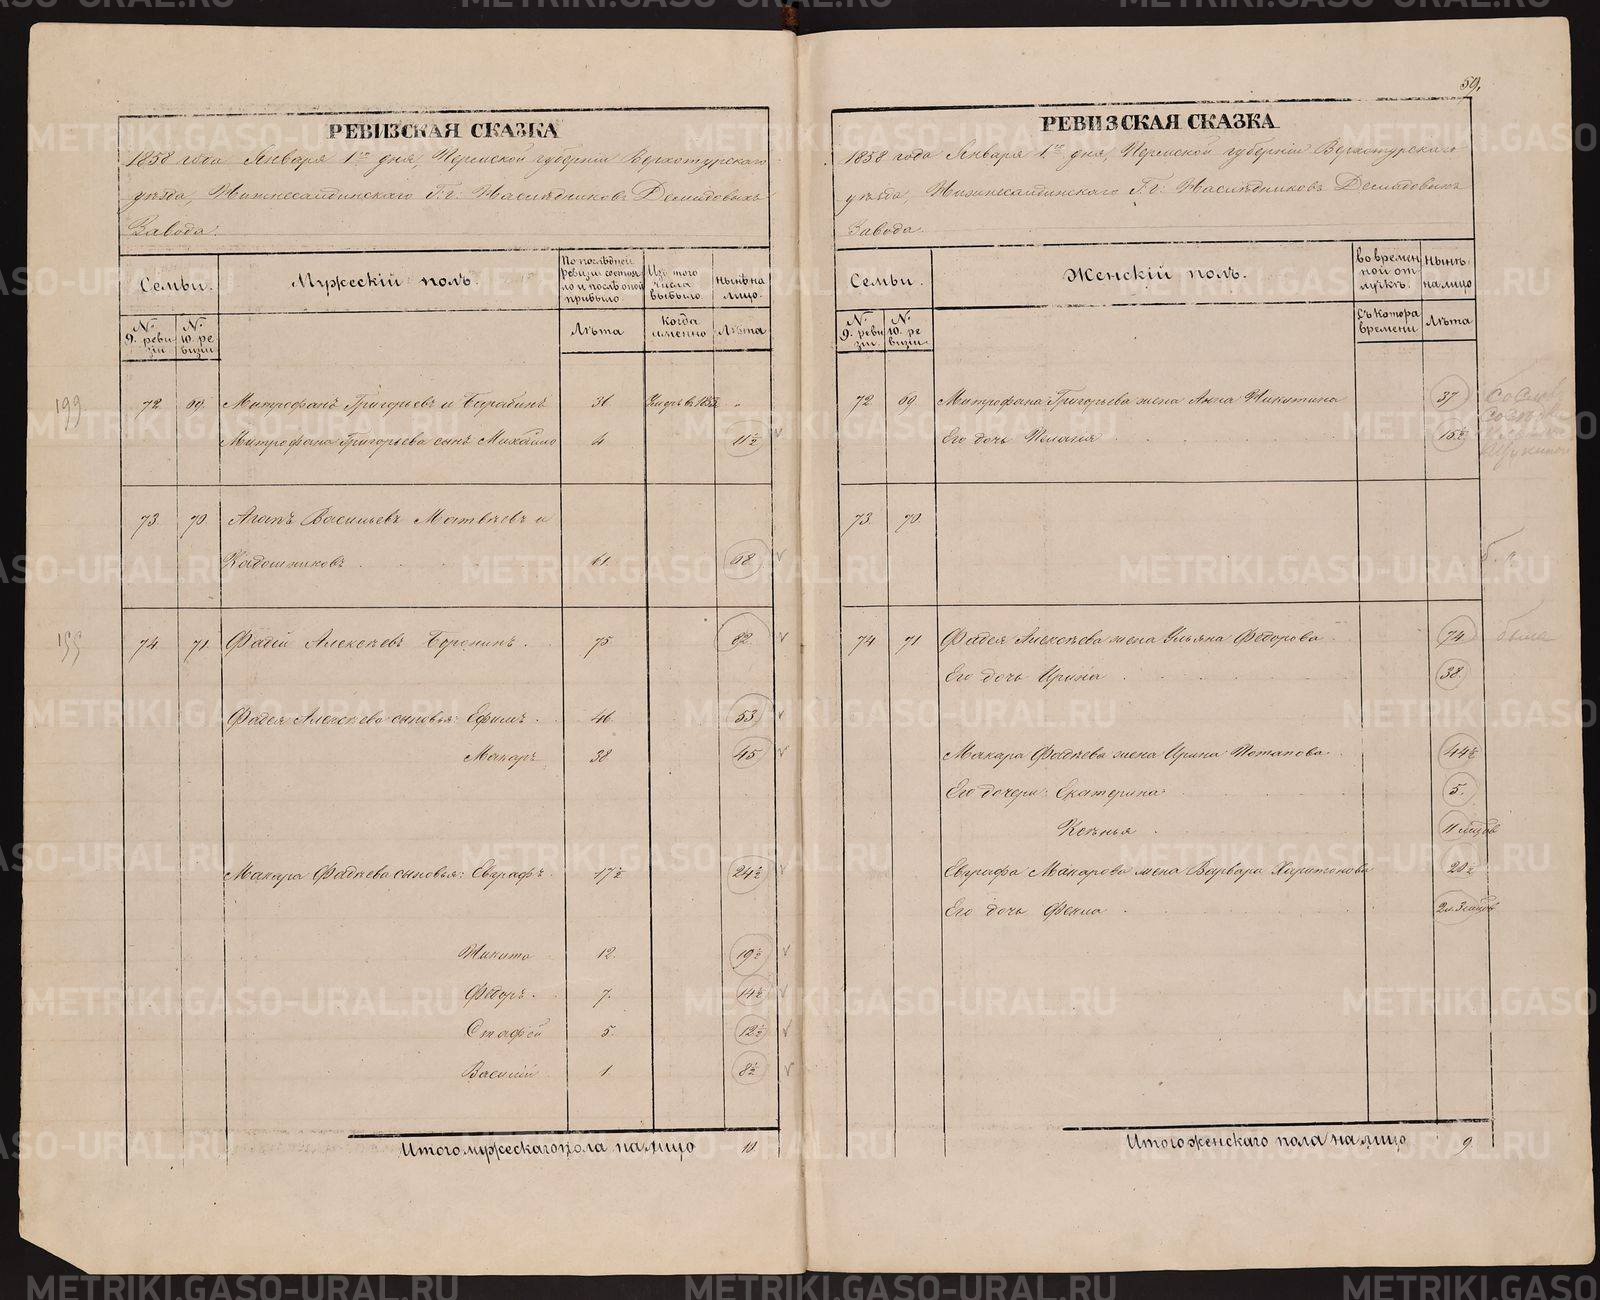 59.
РЕВИЗСКАЯ СКАЗКА
1858 года Января 1го дня, Пермской губернiи Верхотурскаго
уѣзда, Нижнесалдинскаго Г.г. Наслѣдниковъ Демидовыхъ
Завода.
Семьи.
Мужескiй полъ.
По послѣдней ревизiи состояло и послѣ оной прибыло
Изъ того числа выбыло
нынѣ на лицо.
№ 9. ревизiи
№ 10. ревизiи
Лѣта
Когда именно
Лѣта
199
72 69. Митрофанъ Григорьевъ и Барабинъ 36 Умеръ въ 1853
Митрофана Григорьева сынъ Михайло 4 11½
73. 70. Агапъ Васильевъ Матвѣевъ и
Кадошниковъ 61. 68
74. 71. Фадѣй Алексѣевъ Воронинъ. 75 82
Фадея Алексѣева сыновья: Ефимъ. 46 53
Макаръ 38 45
Макара Фадѣева сыновья: Евграфъ. 17½ 24½
Никита 12. 19½
Фёдоръ. 7. 14½
Стафей 5. 12½
Василiй 1 8½
Итого мужескаго пола на лицо 10
РЕВИЗСКАЯ СКАЗКА
1858 года Января 1го дня, Пермской губернiи Верхотурскаго
уѣзда, Нижнесалдинскаго Г.г. Наслѣдниковъ Демидовыхъ
Завода.
Семьи.
Женскiй полъ.
во временной отлучкѣ.
нынѣ на лицо
№ 9. ревизiи.
№ 10. ревизiи.
Съ котора времени
Лѣта
72 69 Митрофана Григорьева жена Анна Никитина 37
Его дочь Пелагея 15½
73. 70.
74 71 Фадея Алексѣева жена Ульяна Федорова 74
Его дочь Ирина 38.
Макара Фадѣева жена Ирина Потапова 44½
Его дочери: Екатерина 5.
Ксѣнья 11 мѣсяцовъ
Евграфа Макарова жена Варвара Харитонова 20½
Его дочь Фекла 2 и 3 мѣсяцовъ
Итого женскаго пола на лицо 9
METRIKI.GASO-URAL.RU